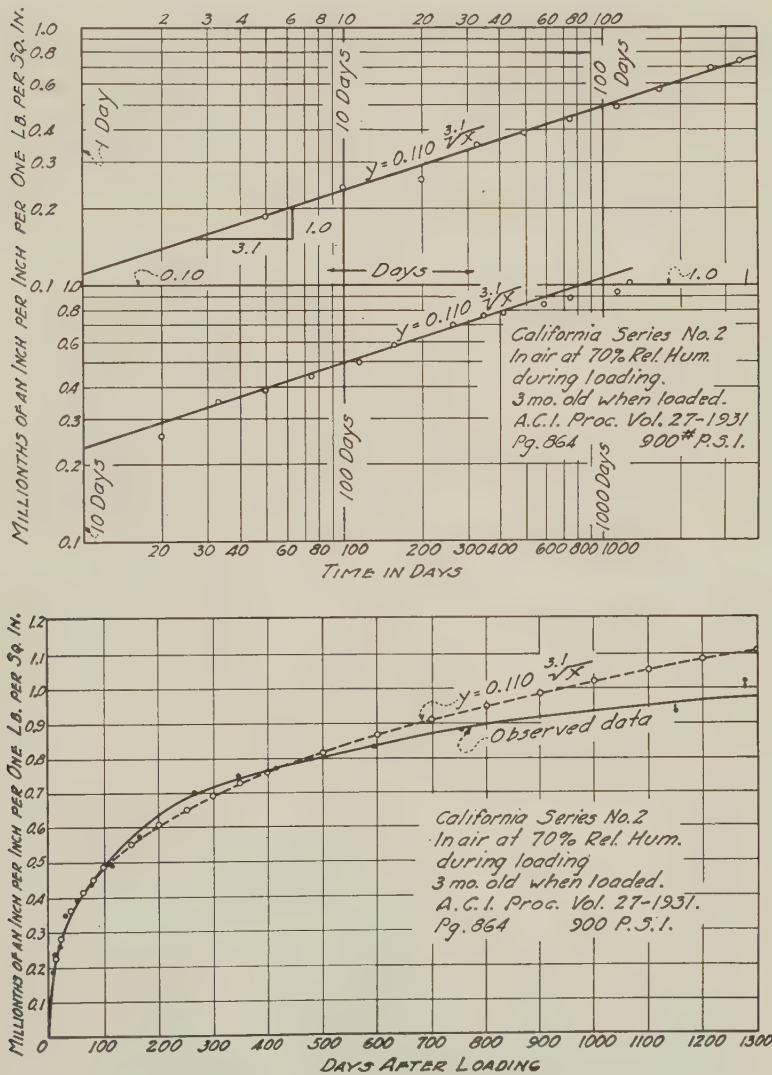 2 3 4 6 8 10 20 30 40 60 80 100
1.0
0.8
0.6
0.4
0.3
0.2
0.1
1 Day
10 Days
100 Days
y = 0.110 3.1√x
1.0
3.1
MILLIONTHS OF AN INCH PER INCH PER ONE LB. PER SQ. IN.
0.10
Days
1.0
1.0
0.8
0.6
0.4
0.3
0.2
0.1
y = 0.110 3.1√x
10 Days
100 Days
1000 Days
California Series No.2
In air at 70% Rel. Hum.
during loading.
3 mo. old when loaded.
A.C.I. Proc. Vol. 27-1931
Pg. 864 900# P.S.I.
20 30 40 60 80 100 200 300 400 600 800 1000
TIME IN DAYS
MILLIONTHS OF AN INCH PER INCH PER ONE LB. PER SQ. IN.
1.2
1.1
1.0
0.9
0.8
0.7
0.6
0.5
0.4
0.3
0.2
0.1
0
y = 0.110 3.1√x
Observed data
California Series No.2
In air at 70% Rel. Hum.
during loading
3 mo. old when loaded.
A.C.I. Proc. Vol. 27-1931.
Pg. 864 900 P.S.I.
100 200 300 400 500 600 700 800 900 1000 1100 1200 1300
DAYS AFTER LOADING